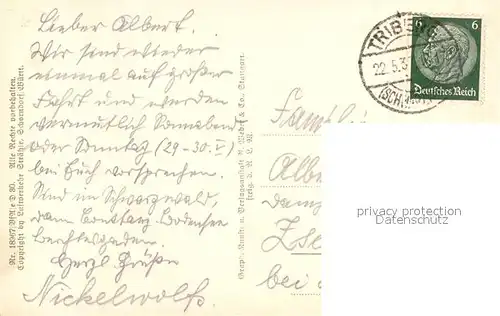 Lieber Albert.
Wir sind wieder
einmal auf großer
Fahrt und werden
vermutlich Sonnabend
oder Sonntag (29-30.V)
bei Euch vorsprechen.
Sind im Schwarzwald,
dann Bodensee
Berchtesgaden.
Herzl Grüße
Nickelwolfs.
Nr. D 30. Alle Rechte vorbehalten.
Copyright by Luftverkehr Strähle, Schorndorf, Württ.
Graph. Kunst- u. Verlagsanstalt & Co., Stuttgart.
TRIBERG
22.5.3
(SCH
6
Deutsches Reich
Famil
Albe
bei
privacy protection
Datenschutz